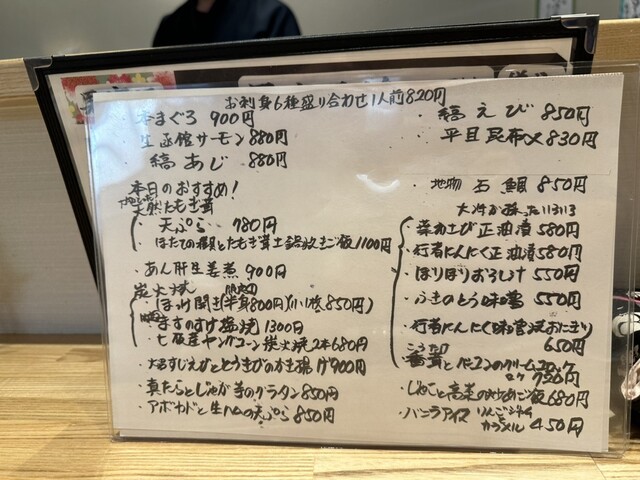 お刺身6種盛り合わせ1人前820円
本まぐろ 900円
生 函館サーモン 880円
縞あじ 880円
縞えび 850円
平目昆布〆 830円
地物 石鯛 850円
本日のおすすめ!
天然たもぎ茸
・天ぷら 780円
・ほたての稚貝とたもぎ茸土鍋炊きご飯 1100円
・あん肝生姜煮 900円
炭火焼
ほっけ開き(半身800円)(小1枚850円)
ますのすけ塩焼 1300円
・七飯産ヤングコーン炭火焼2本680円
・大名すじえびととうきびのかき揚げ900円
・真たらとじゃが芋のグラタン 850円
・アボカドと生ハムの天ぷら 850円
大将が採ったｲﾛｲﾛ
・葉わさび正油漬 580円
・行者にんにく正油漬 580円
・ほりほりおろし汁 550円
・ふきのとう味噌 550円
・行者にんにく味噌焼おにぎり
650円
・番茄とベーコンのクリームコロッケ
・じゃこと高菜の炒めご飯 680円
・バニラアイス りんごジャム
カラメル 450円